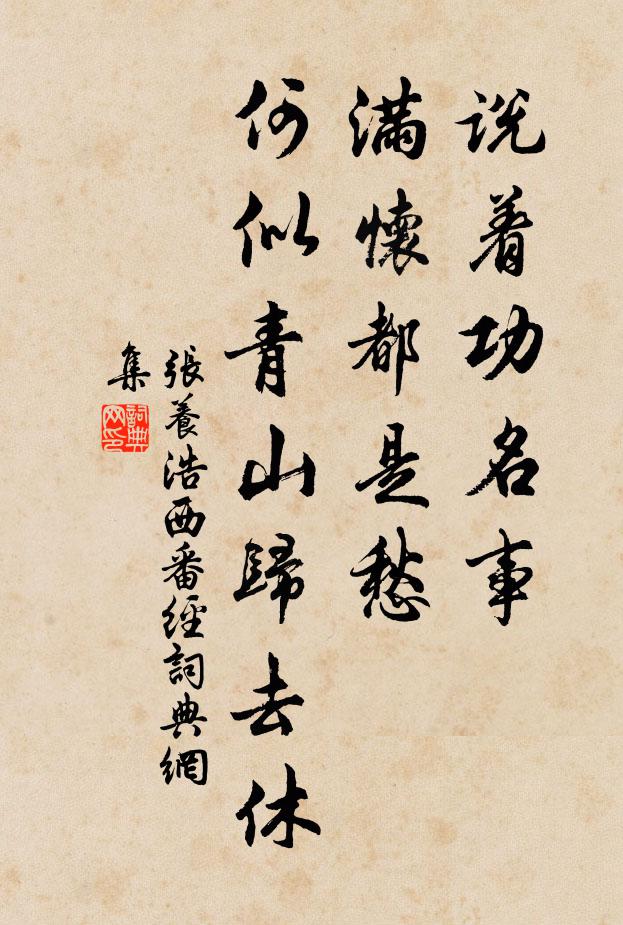 说着功名事
滿懷都是愁
何似青山歸去休
張養浩西番經詞典網
集
詞典
网印